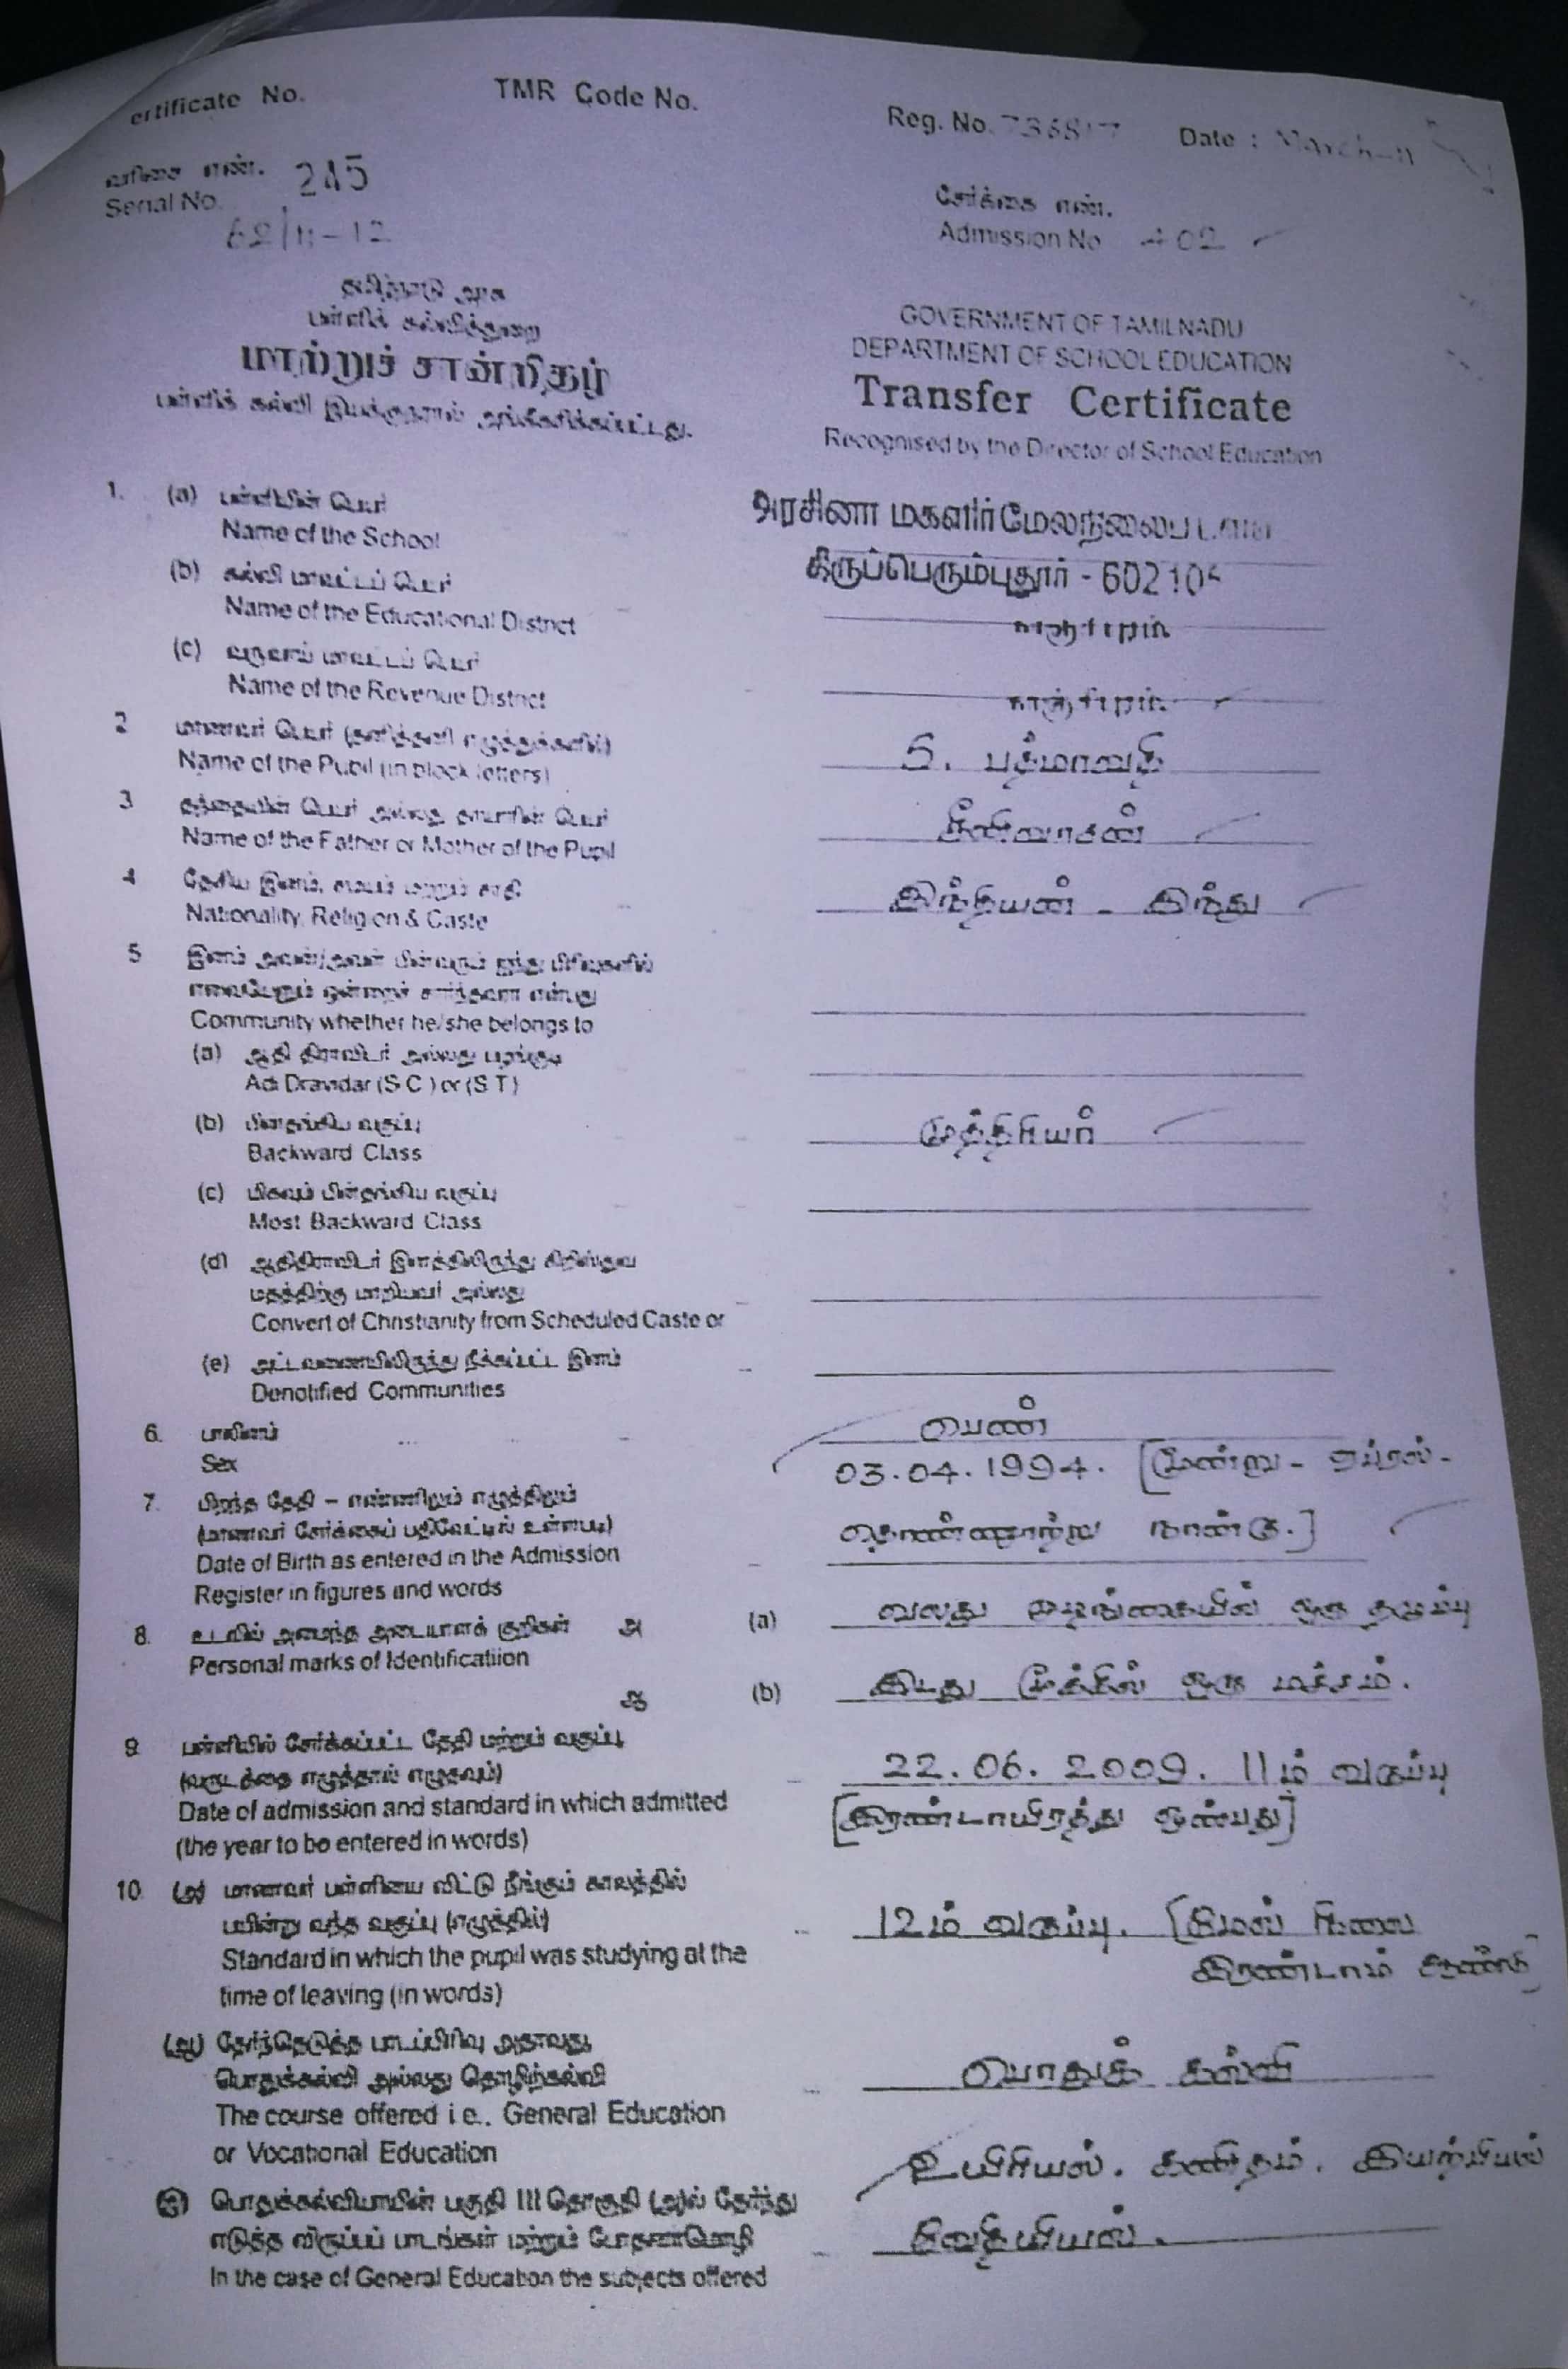 ertificate No. TMR Code No. Reg. No. Date : March-11
வரிசை எண். 245
Serial No.
62/11-12
சேர்க்கை எண்.
Admission No 402
தமிழ்நாடு அரசு
பள்ளிக் கல்வித்துறை
மாற்றுச் சான்றிதழ்
பள்ளிக் கல்வி இயக்குநரால் அங்கீகரிக்கப்பட்டது.
GOVERNMENT OF TAMILNADU
DEPARTMENT OF SCHOOL EDUCATION
Transfer Certificate
Recognised by the Director of School Education
1. (a) பள்ளியின் பெயர் அரசினா மகளிர் மேலநிலைப
Name of the School
திருப்பெரும்புதூர் - 60210
(b) கல்வி மாவட்டப் பெயர்
Name of the Educational District
(c) வருவாய் மாவட்டப் பெயர்
Name of the Revenue District
2 மாணவர் பெயர் (தனித்தனி எழுத்துக்களில்) S. பத்மாவதி
Name of the Pupil (in block letters)
3 தந்தையின் பெயர் அல்லது தாயாரின் பெயர்
Name of the Father or Mother of the Pupil
4 தேசிய இனம், சமயம் மற்றும் சாதி இந்தியன் - இந்து
Nationality, Religion & Caste
5 இனம் அவன்/அவள் பின்வரும் ஐந்து பிரிவுகளில்
எவையேனும் ஒன்றைச் சார்ந்தவரா என்பது
Community whether he/she belongs to
(a) ஆதி திராவிடர் அல்லது பழங்குடி
Adi Dravidar (S C ) or (S T)
(b) பின்தங்கிய வகுப்பு முத்திரியர்
Backward Class
(c) மிகவும் பின்தங்கிய வகுப்பு
Most Backward Class
(d) ஆதிதிராவிடர் இனத்திலிருந்து கிறிஸ்துவ
மதத்திற்கு மாறியவர் அல்லது
Convert of Christianity from Scheduled Caste or
(e) அட்டவணையிலிருந்து நீக்கப்பட்ட இனம்
Denotified Communities
6. பாலினம் பெண்
Sex
7. பிறந்த தேதி – எண்ணிலும் எழுத்திலும் 03.04.1994. [மூன்று - ஏப்ரல் -
(மாணவர் சேர்க்கைப் பதிவேட்டில் உள்ளபடி) தொண்ணூற்று நான்கு.]
Date of Birth as entered in the Admission
Register in figures and words
8. உடலில் அமைந்த அடையாளக் குறிகள் அ (a) வலது முழங்கையில் ஒரு தழும்பு
Personal marks of Identificatiion
ஆ (b) இடது மூக்கில் ஒரு மச்சம்.
9 பள்ளியில் சேர்க்கப்பட்ட தேதி மற்றும் வகுப்பு
(வருடத்தை எழுத்தால் எழுதவும்) 22.06.2009. 11ம் வகுப்பு
Date of admission and standard in which admitted [இரண்டாயிரத்து ஒன்பது]
(the year to be entered in words)
10. (அ) மாணவர் பள்ளியை விட்டு நீங்கும் காலத்தில்
பயின்று வந்த வகுப்பு (எழுத்தில்) 12ம் வகுப்பு. [மேல் நிலை
Standard in which the pupil was studying at the இரண்டாம் ஆண்டு]
time of leaving (in words)
(ஆ) தேர்ந்தெடுத்த பாடப்பிரிவு அதாவது
பொதுக்கல்வி அல்லது தொழிற்கல்வி பொதுக் கல்வி
The course offered i.e., General Education
or Vocational Education
உயிரியல். கணிதம். இயற்பியல்
(இ) பொதுக்கல்வியாயின் பகுதி III தொகுதி (அ)ல் தேர்ந்து
எடுத்த விருப்பப் பாடங்கள் மற்றும் போதனாமொழி வேதியியல்.
In the case of General Education the subjects offered